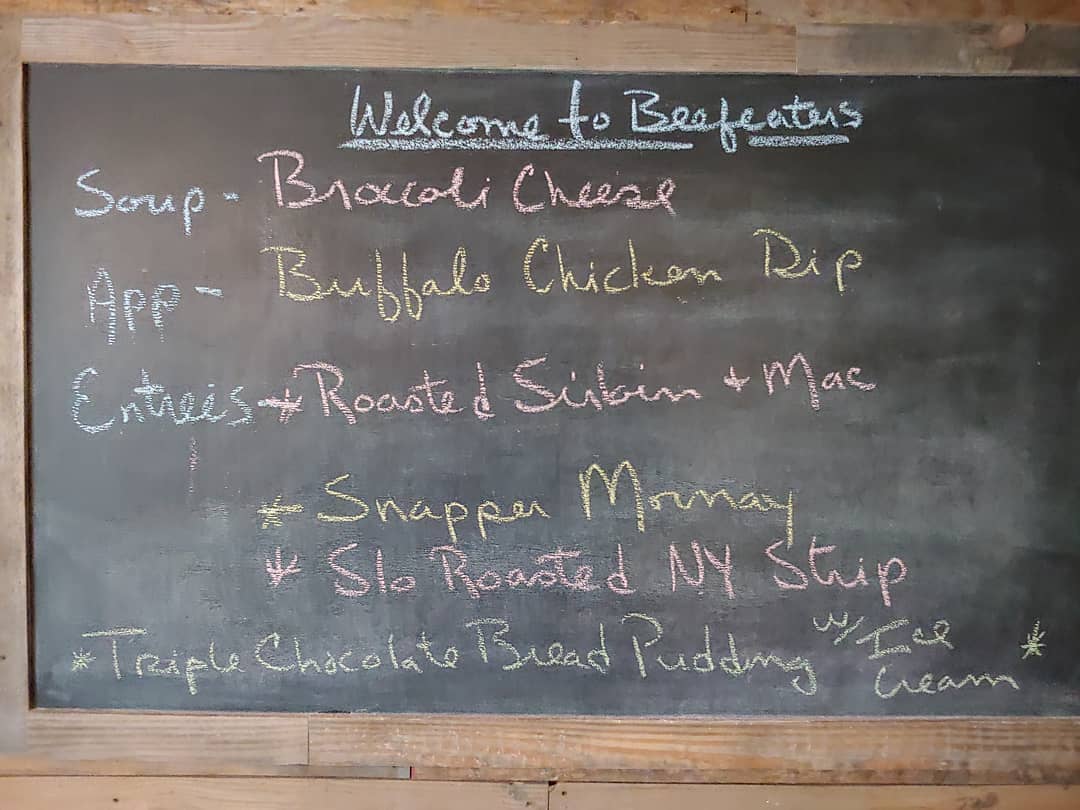 Welcome to Beefeaters
Soup - Broccoli Cheese
App - Buffalo Chicken Dip
Entrees * Roasted Sirloin + Mac
* Snapper Mornay
* Slo Roasted NY Strip
* Triple Chocolate Bread Pudding w/ Ice Cream *